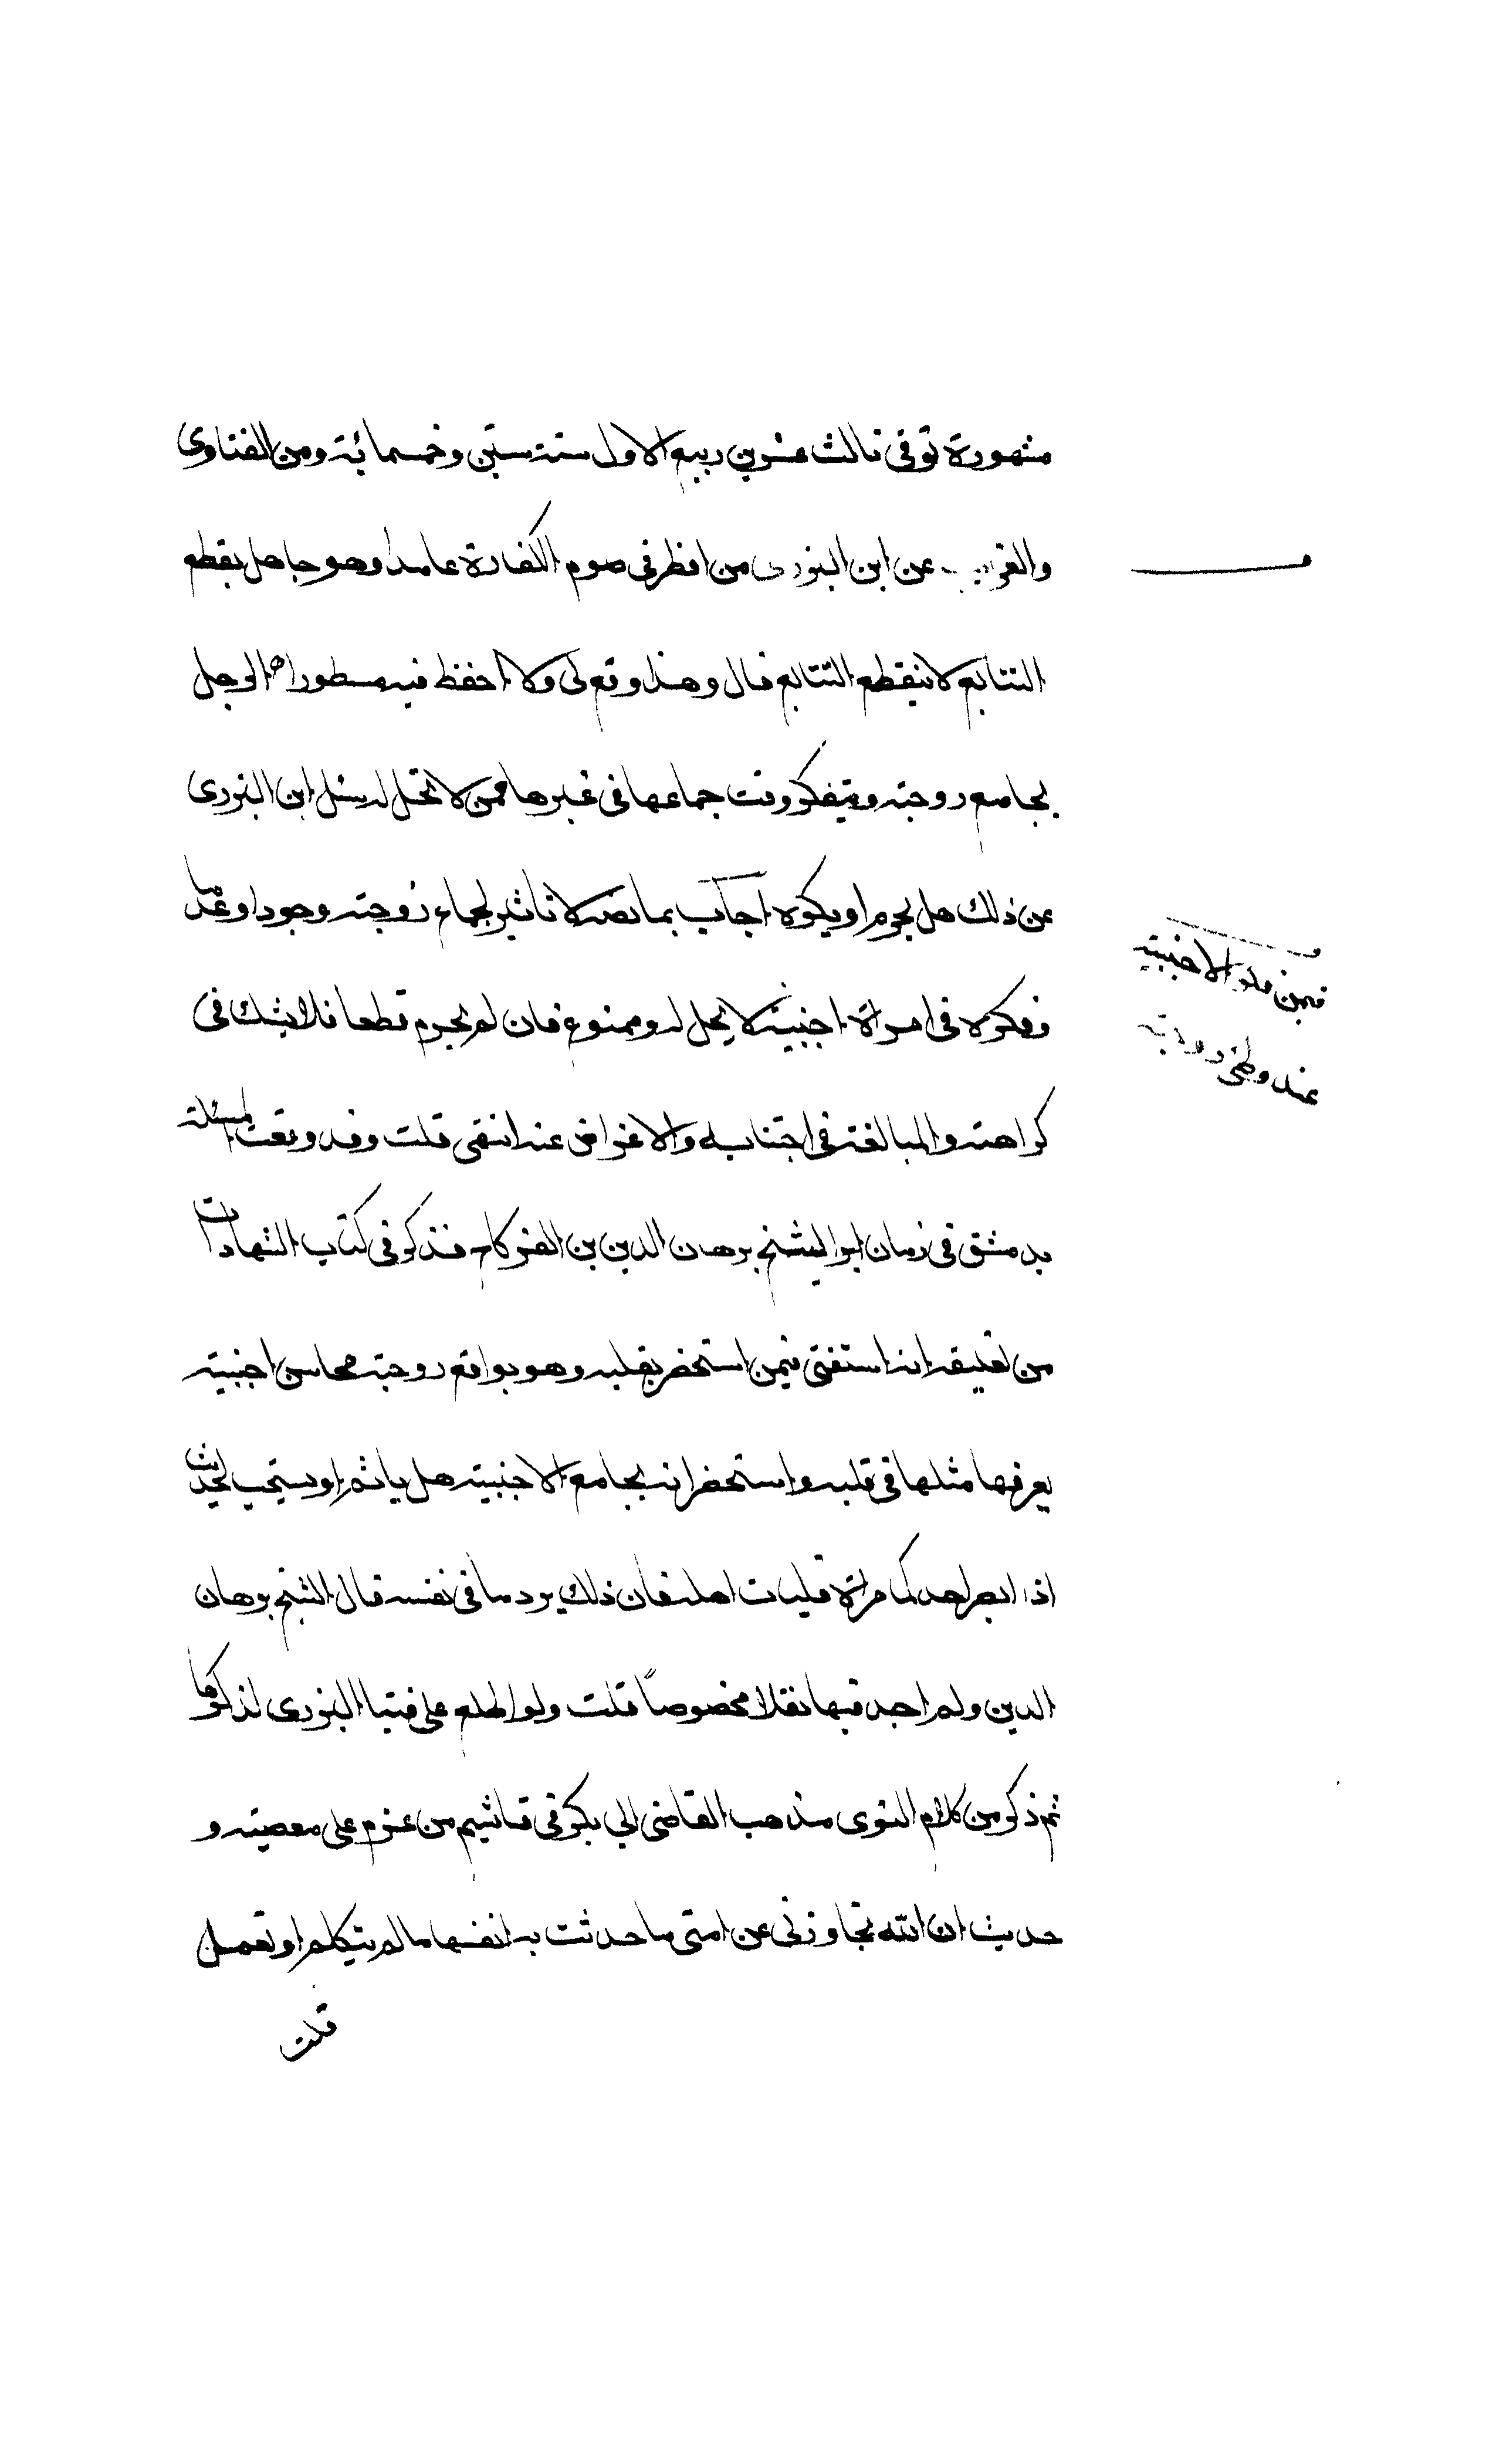 مشهورة توفى ثالث عشرين ربيع الاول سنة ستين وخمسمائة ومن الفتاوى
والغرايب عن ابن البزرى من افطر فى صوم الكفارة عامدا وهو جاهل بقطع
التتابع لا ينقطع التتابع قال وهذا وقع لى ولا احفظ فيه مسطورا ه الرجل
يجامع زوجته ويتفكر وقت جماعها فى غيرها ممن لا تحل له سئل ابن البزرى
عن ذلك هل يحرم او يكره اجاب بما نصه لا تاثير لجماع زوجته وجودا وعدما
وفكره فى امراة اجنبية لا يحل له وممنوع فان لم يحرم قطعا فلا يشك فى
كراهته والمبالغة فى اجتنابه والاغراض عنه انتهى قلت وقد وقعت المسئلة
بدمشق فى زمان ابو الشيخ برهان الدين بن الفركاح فذكر فى كتاب الشهادات
من تعليقه انه استفتى فيمن استحضر بقلبه وهو يواقع زوجته محاسن اجنبية
يعرفها مثلها فى قلبه واستحضر انه يجامع الاجنبية هل ياثم او يستحب لحديث
اذا ابصر احدكم امراة فليات اهله فان ذلك يرد ما فى نفسه قال الشيخ برهان
الدين ولم اجد فيها نقلا مخصوصاً قلت ولو اطلع على فتيا البزرى لذكرها
ثم ذكر من كلام النووى مذهب القاضى ابي بكر فى تاثيم من عزم على معصية و
حديث ان الله تجاوز لى عن امتى ما حدثت به انفسها ما لم يتكلم او تعمل
قلت
فيمن الاجنبية
عند وطئ زوجته